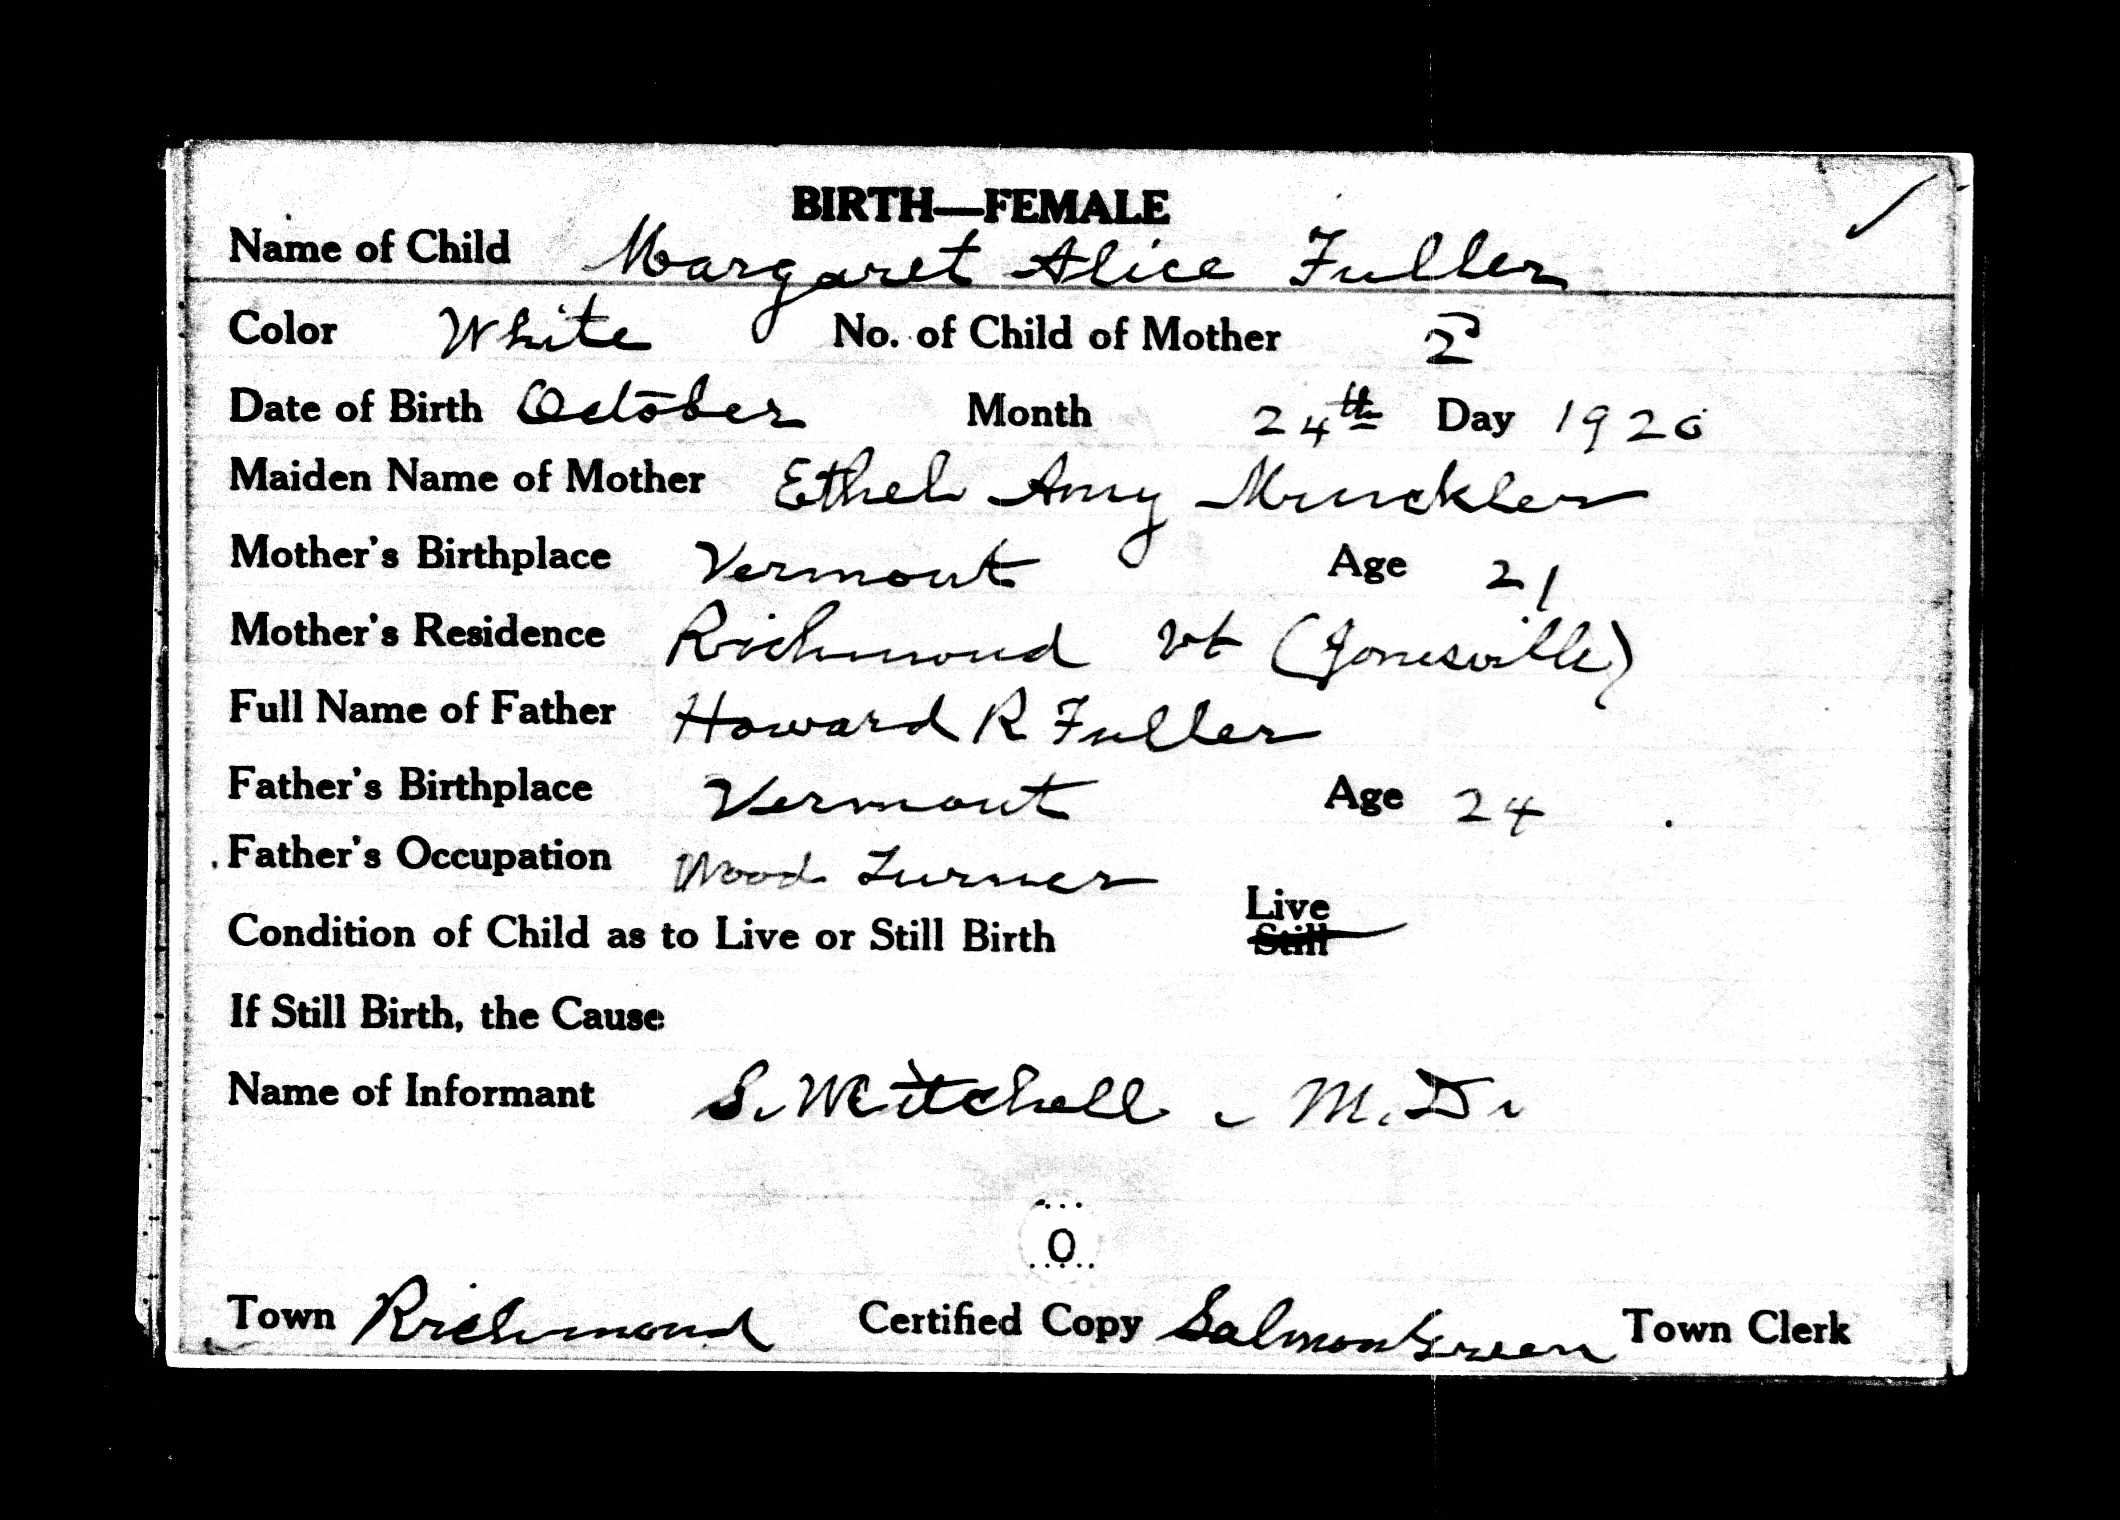 BIRTH—FEMALE
Name of Child Margaret Alice Fuller
Color White No. of Child of Mother 2
Date of Birth October Month 24th Day 1920
Maiden Name of Mother Ethel Amy Munckler
Mother's Birthplace Vermont Age 21
Mother's Residence Richmond Vt (Jonesville)
Full Name of Father Howard R Fuller
Father's Birthplace Vermont Age 24
Father's Occupation Wood Turner
Condition of Child as to Live or Still Birth Live
Still
If Still Birth, the Cause
Name of Informant S. Mitchell, M.D.
O
Town Richmond Certified Copy Salmon Green Town Clerk